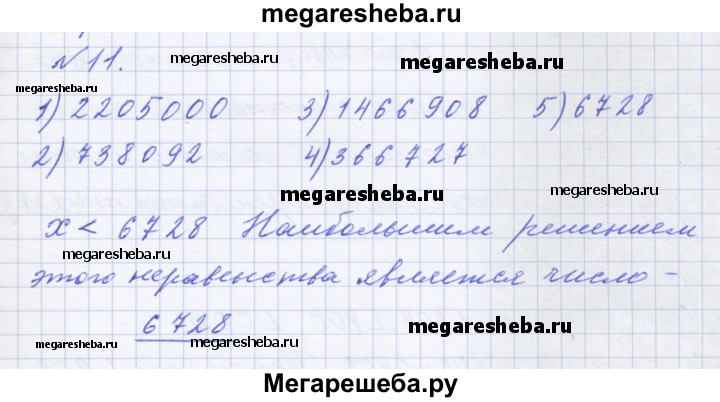 megaresheba.ru
№ 11. megaresheba.ru megaresheba.ru
megaresheba.ru
1) 2205000 3) 1466908 5) 6728
2) 738092 4) 366727
megaresheba.ru megaresheba.ru
x < 6728 Наибольшим решением
megaresheba.ru
этого неравенства является число -
6728 megaresheba.ru
megaresheba.ru megaresheba.ru
Мегарешеба.ру